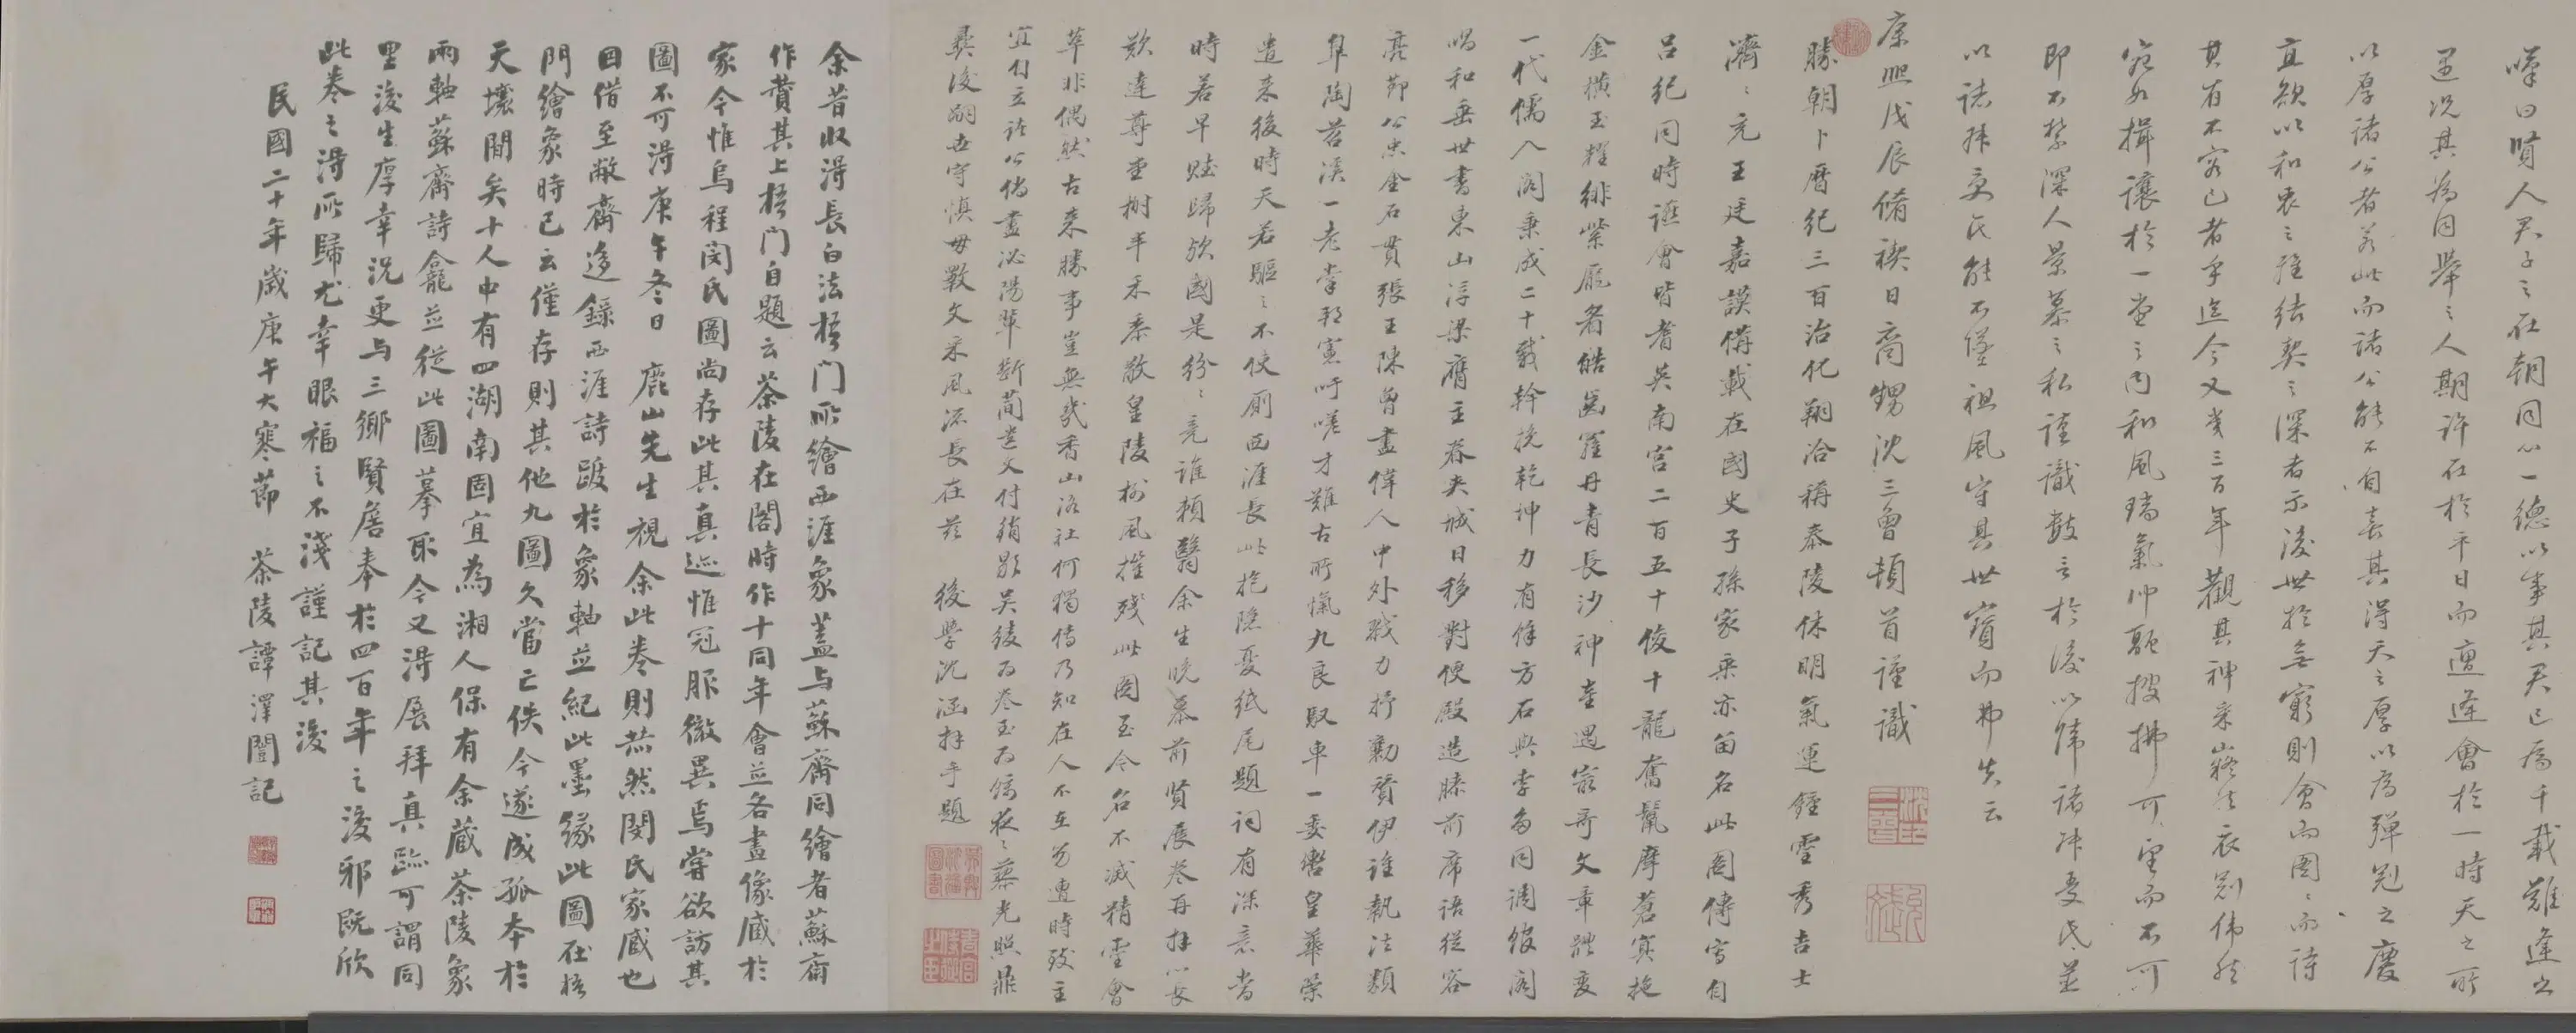 嘆曰賢人君子之在朝同心一德以事其君已為千載難逢之
遇況其為同舉之人期許在於平日而遭逢會於一時天之所
以厚諸公者若此而諸公能不自喜其得天之厚以為彈冠之慶
宜欲以和衷之雅結契之深者示後世於無窮則會而圖圖而詩
其有不容已者乎迄今又幾三百年觀其神采巍然衣冠偉然
宛如揖讓於一堂之內和風瑞氣沖融披拂可望而不可
即不禁深人景慕之私謹識數言於後以歸諸閔氏並
以誌閔氏能不墜祖風守其世寶而弗失云
康熙戊辰脩禊日裔甥沈三曾頓首謹識
勝朝卜曆紀三百治化翔洽稱泰陵休明氣運鍾靈秀吉士
濟濟充王廷嘉謨備載在國史子孫家乘亦留名此圖傳寫自
呂紀同時讌會皆耆英南宮二百五十俊十龍奮鬣摩蒼冥拖
金橫玉耀緋紫龐眉皓齒羅丹青長沙神童遇最奇文章體變
一代儒入閣秉成二十載幹旋乾坤力有餘方石與李為同調館閣
唱和垂世書東山浮梁膺主眷夾城日移對便殿造膝前席語從容
亮節公忠金石貫張王陳曾盡偉人中外戮力抒勤賢伊誰執法類
皋陶苕溪一老掌邦憲吁嗟才難古所慨九良馭車一委轡皇華榮
遣來後時天若驅之不使廁西涯長此抱隱憂紙尾題詞有深意當
時若早賦歸歟國是紛紛竟誰賴翳余生晚慕前賢展卷再拜心長
歎達尊重樹半禾黍敬皇陵樹風摧殘此圖至今名不滅精靈會
萃非偶然古來勝事豈無幾香山洛社何獨傳乃知在人不在象遭時致主
宜自立諸公倘盡泌陽輩斷蕳遺文付銷歇吳綾為卷玉為躞夜夜藜光照鼎
彝後嗣世守慎毋斁文采風流長在茲　後學沈涵拜手題
余昔收得長白法梧門所繪西涯象蓋与蘇齋同繪者蘇齋
作贊其上梧門自題云茶陵在閣時作十同年會並各畫像藏於
家今惟烏程閔氏圖尚存此其真迹惟冠服微異焉嘗欲訪其
圖不可得庚午冬日　鹿山先生視余此卷則恭然閔氏家藏也
因借至敝齋迻錄西涯詩跋於象軸並紀此墨緣此圖在梧
門繪象時已云僅存則其他九圖久當亡佚今遂成孤本於
天壤間矣十人中有四湖南固宜為湘人保有余藏茶陵象
兩軸蘇齋詩龕並從此圖摹取今又得展拜真跡可謂同
里後生厚幸況更与三鄉賢居奉於四百年之後邪既欣
此卷之得所歸尤幸眼福之不淺謹記其後
民國二十年歲庚午大寒節　茶陵譚澤闓記